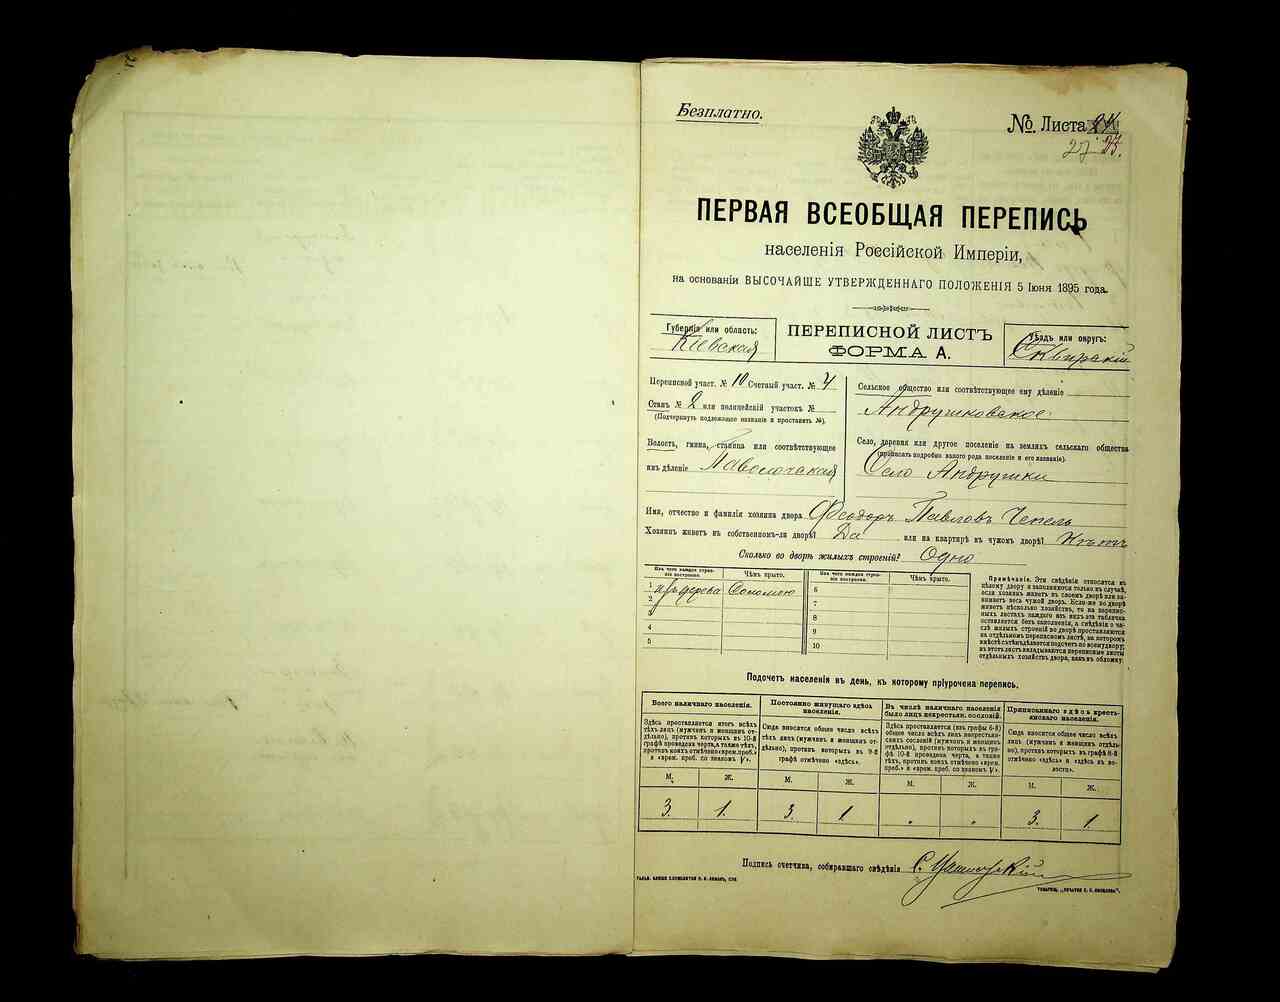 Безплатно.
№. Листа 24
27 25.
ПЕРВАЯ ВСЕОБЩАЯ ПЕРЕПИСЬ
населенія Россійской Имперіи,
на основаніи ВЫСОЧАЙШЕ УТВЕРЖДЕННАГО ПОЛОЖЕНІЯ 5 Іюня 1895 года.
Губернія или область:
Кіевская
ПЕРЕПИСНОЙ ЛИСТЪ
ФОРМА А.
Уѣздъ или округъ:
Сквирскій
Переписной участ. № 10 Счетный участ. № 4
Станъ № 2 или полицейскій участокъ №
(Подчеркнуть подлежащее названіе и проставить №).
Волость, гмина, станица или соотвѣтствующее
имъ дѣленіе Паволочская
Сельское общество или соотвѣтствующее ему дѣленіе
Андрушковское
Село, деревня или другое поселеніе на земляхъ сельскаго общества
(прописать подробно какого рода поселеніе и его названіе).
Село Андрушки
Имя, отчество и фамилія хозяина двора Феодоръ Павловъ Чепель
Хозяинъ живетъ въ собственномъ-ли дворѣ? Да или на квартирѣ въ чужомъ дворѣ? Нѣтъ
Сколько во дворѣ жилыхъ строеній? Одно
Изъ чего каждое строеніе построено. Чѣмъ крыто. Изъ чего каждое строеніе построено. Чѣмъ крыто.
1 изъ дерева Соломою 6
2 7
3 8
4 9
5 10
Примѣчаніе. Эти свѣдѣнія относятся къ
цѣлому двору и заполняются только въ случаѣ,
если хозяинъ живетъ въ своемъ дворѣ или занимаетъ
весь чужой дворъ. Если-же во дворѣ
живетъ нѣсколько хозяйствъ, то на переписныхъ
листахъ каждаго изъ нихъ эта табличка
оставляется безъ заполненія, а свѣдѣнія о числѣ
жилыхъ строеній во дворѣ проставляются
на отдѣльномъ переписномъ листѣ, на которомъ
вмѣстѣ съ тѣмъ дѣлается подсчетъ по всему двору;
въ этотъ листъ вкладываются переписные листы
отдѣльныхъ хозяйствъ двора, какъ въ обложку.
Подсчетъ населенія въ день, къ которому пріурочена перепись.
Всего наличнаго населенія.
Здѣсь проставляется итогъ всѣхъ
тѣхъ лицъ (мужчинъ и женщинъ отдѣльно),
противъ которыхъ въ 10-й
графѣ проведена черта, а также тѣхъ,
противъ коихъ отмѣчено «врем. преб.»
и «врем. преб. по знакомъ V».
Постоянно живущаго здѣсь населенія.
Сюда вносится общее число всѣхъ
тѣхъ лицъ (мужчинъ и женщинъ отдѣльно),
противъ которыхъ въ 9-й
графѣ отмѣчено «здѣсь».
Въ числѣ наличнаго населенія было лицъ некрестьян. сословій.
Здѣсь проставляется (изъ графы 6-й)
общее число всѣхъ лицъ некрестьянскихъ
сословій (мужчинъ и женщинъ
отдѣльно), противъ которыхъ въ графѣ
10-й проведена черта, а также
тѣхъ, противъ коихъ отмѣчено «врем.
преб.» и «врем. преб. по знакомъ V».
Приписаннаго здѣсь крестьянскаго населенія.
Сюда вносится общее число всѣхъ
лицъ (мужчинъ и женщинъ отдѣльно),
противъ которыхъ въ графѣ 8-й
отмѣчено «здѣсь» и «здѣсь въ волости».
М. Ж. М. Ж. М. Ж. М. Ж.
3. 1. 3. 1 „ „ 3. 1.
Подпись счетчика, собиравшаго свѣдѣнія